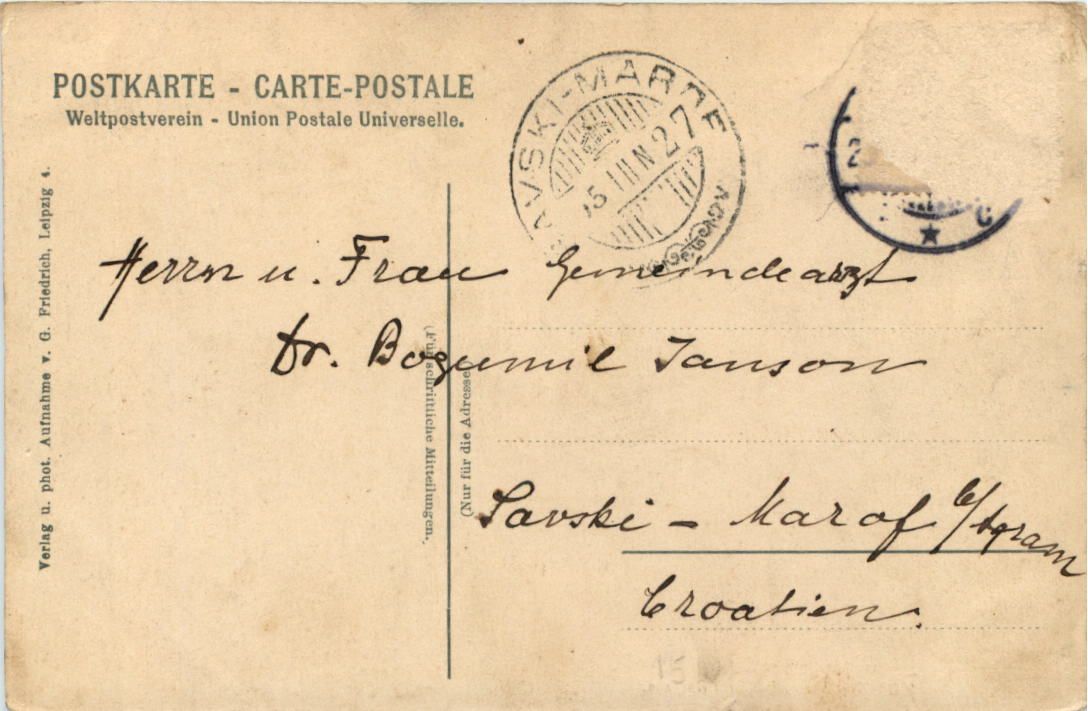 POSTKARTE - CARTE-POSTALE
Weltpostverein - Union Postale Universelle.
SAVSKI-MAROF
27
C
Herrn u. Frau Gemeindearzt
Dr. Bogumil Janson
Savski - Marof b/Agram
Croatien.
(Für schriftliche Mitteilungen.)
(Nur für die Adresse)
Verlag u. phot. Aufnahme v. G. Friedrich, Leipzig 4.
15